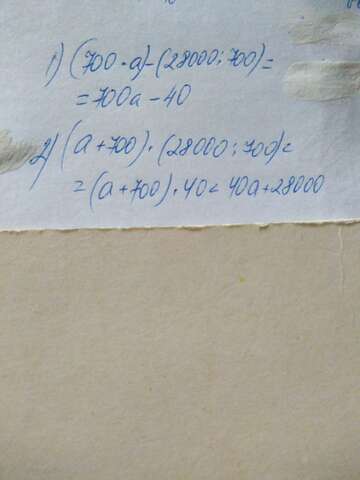 1) (700 · a) - (28000 : 700) =
= 700a - 40
2) (a + 700) · (28000 : 700) =
= (a + 700) · 40 = 40a + 28000